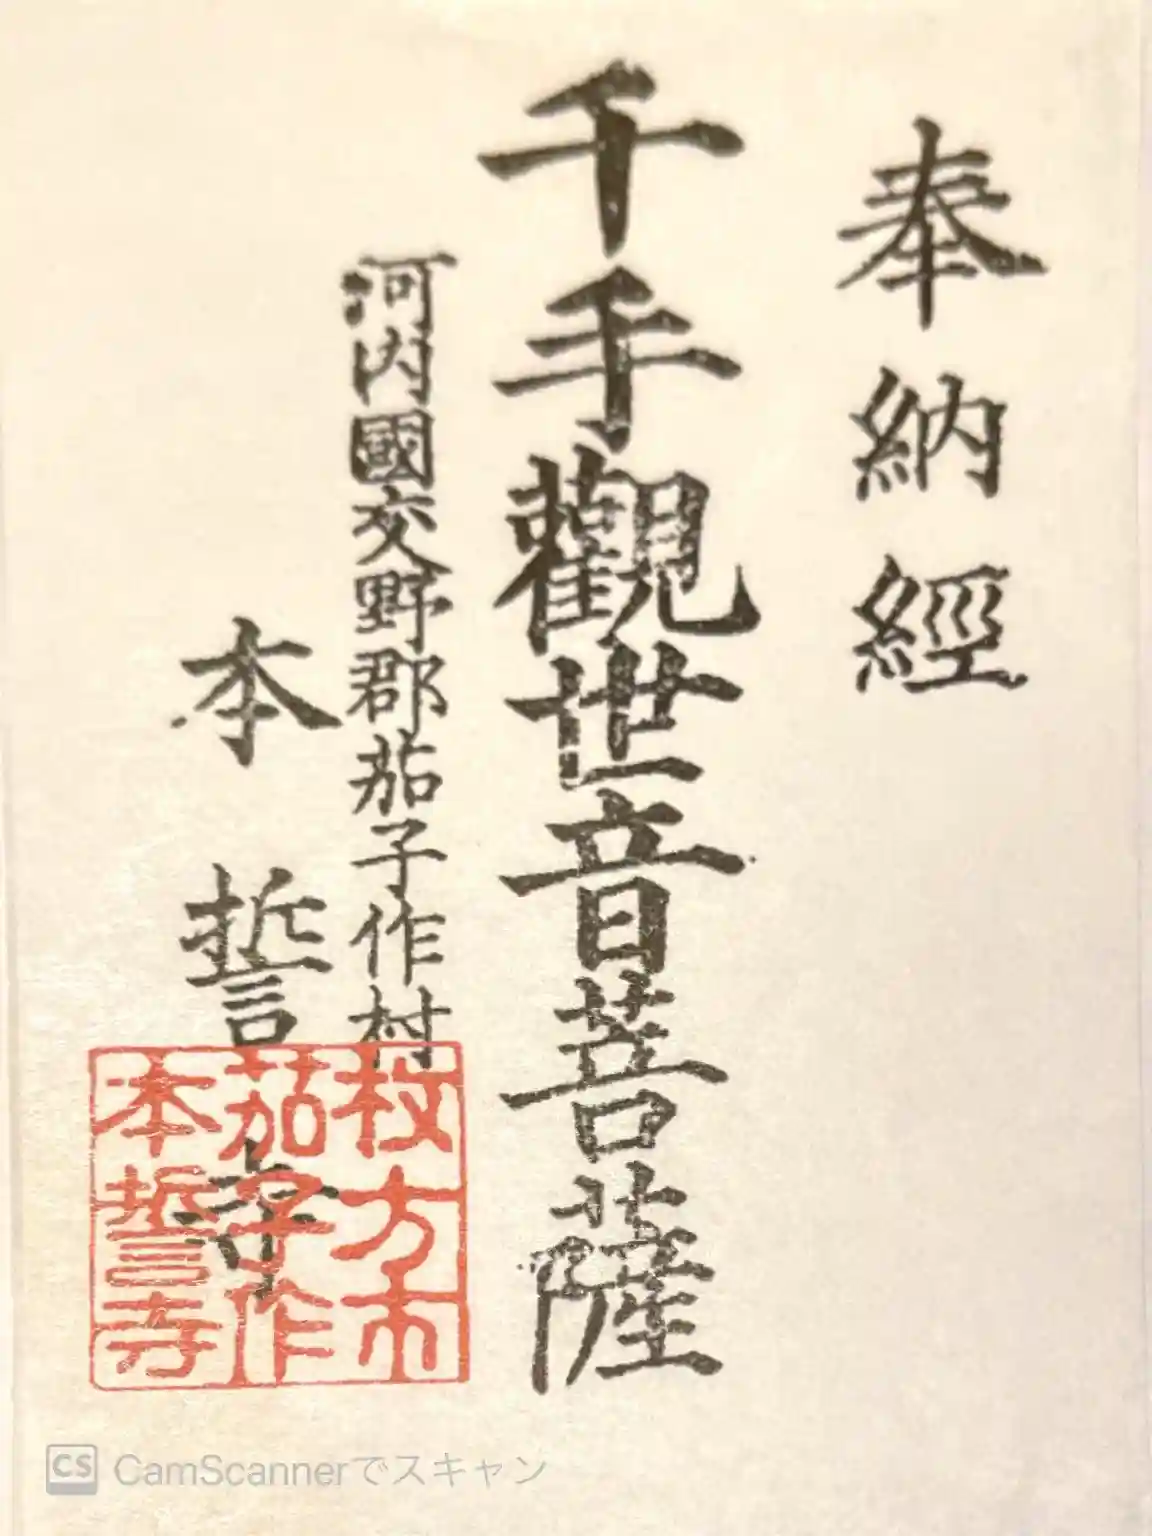 奉納經
千手觀世音菩薩
河内國交野郡茄子作村
本誓寺
枚方市
茄子作
本誓寺
CS CamScannerでスキャン